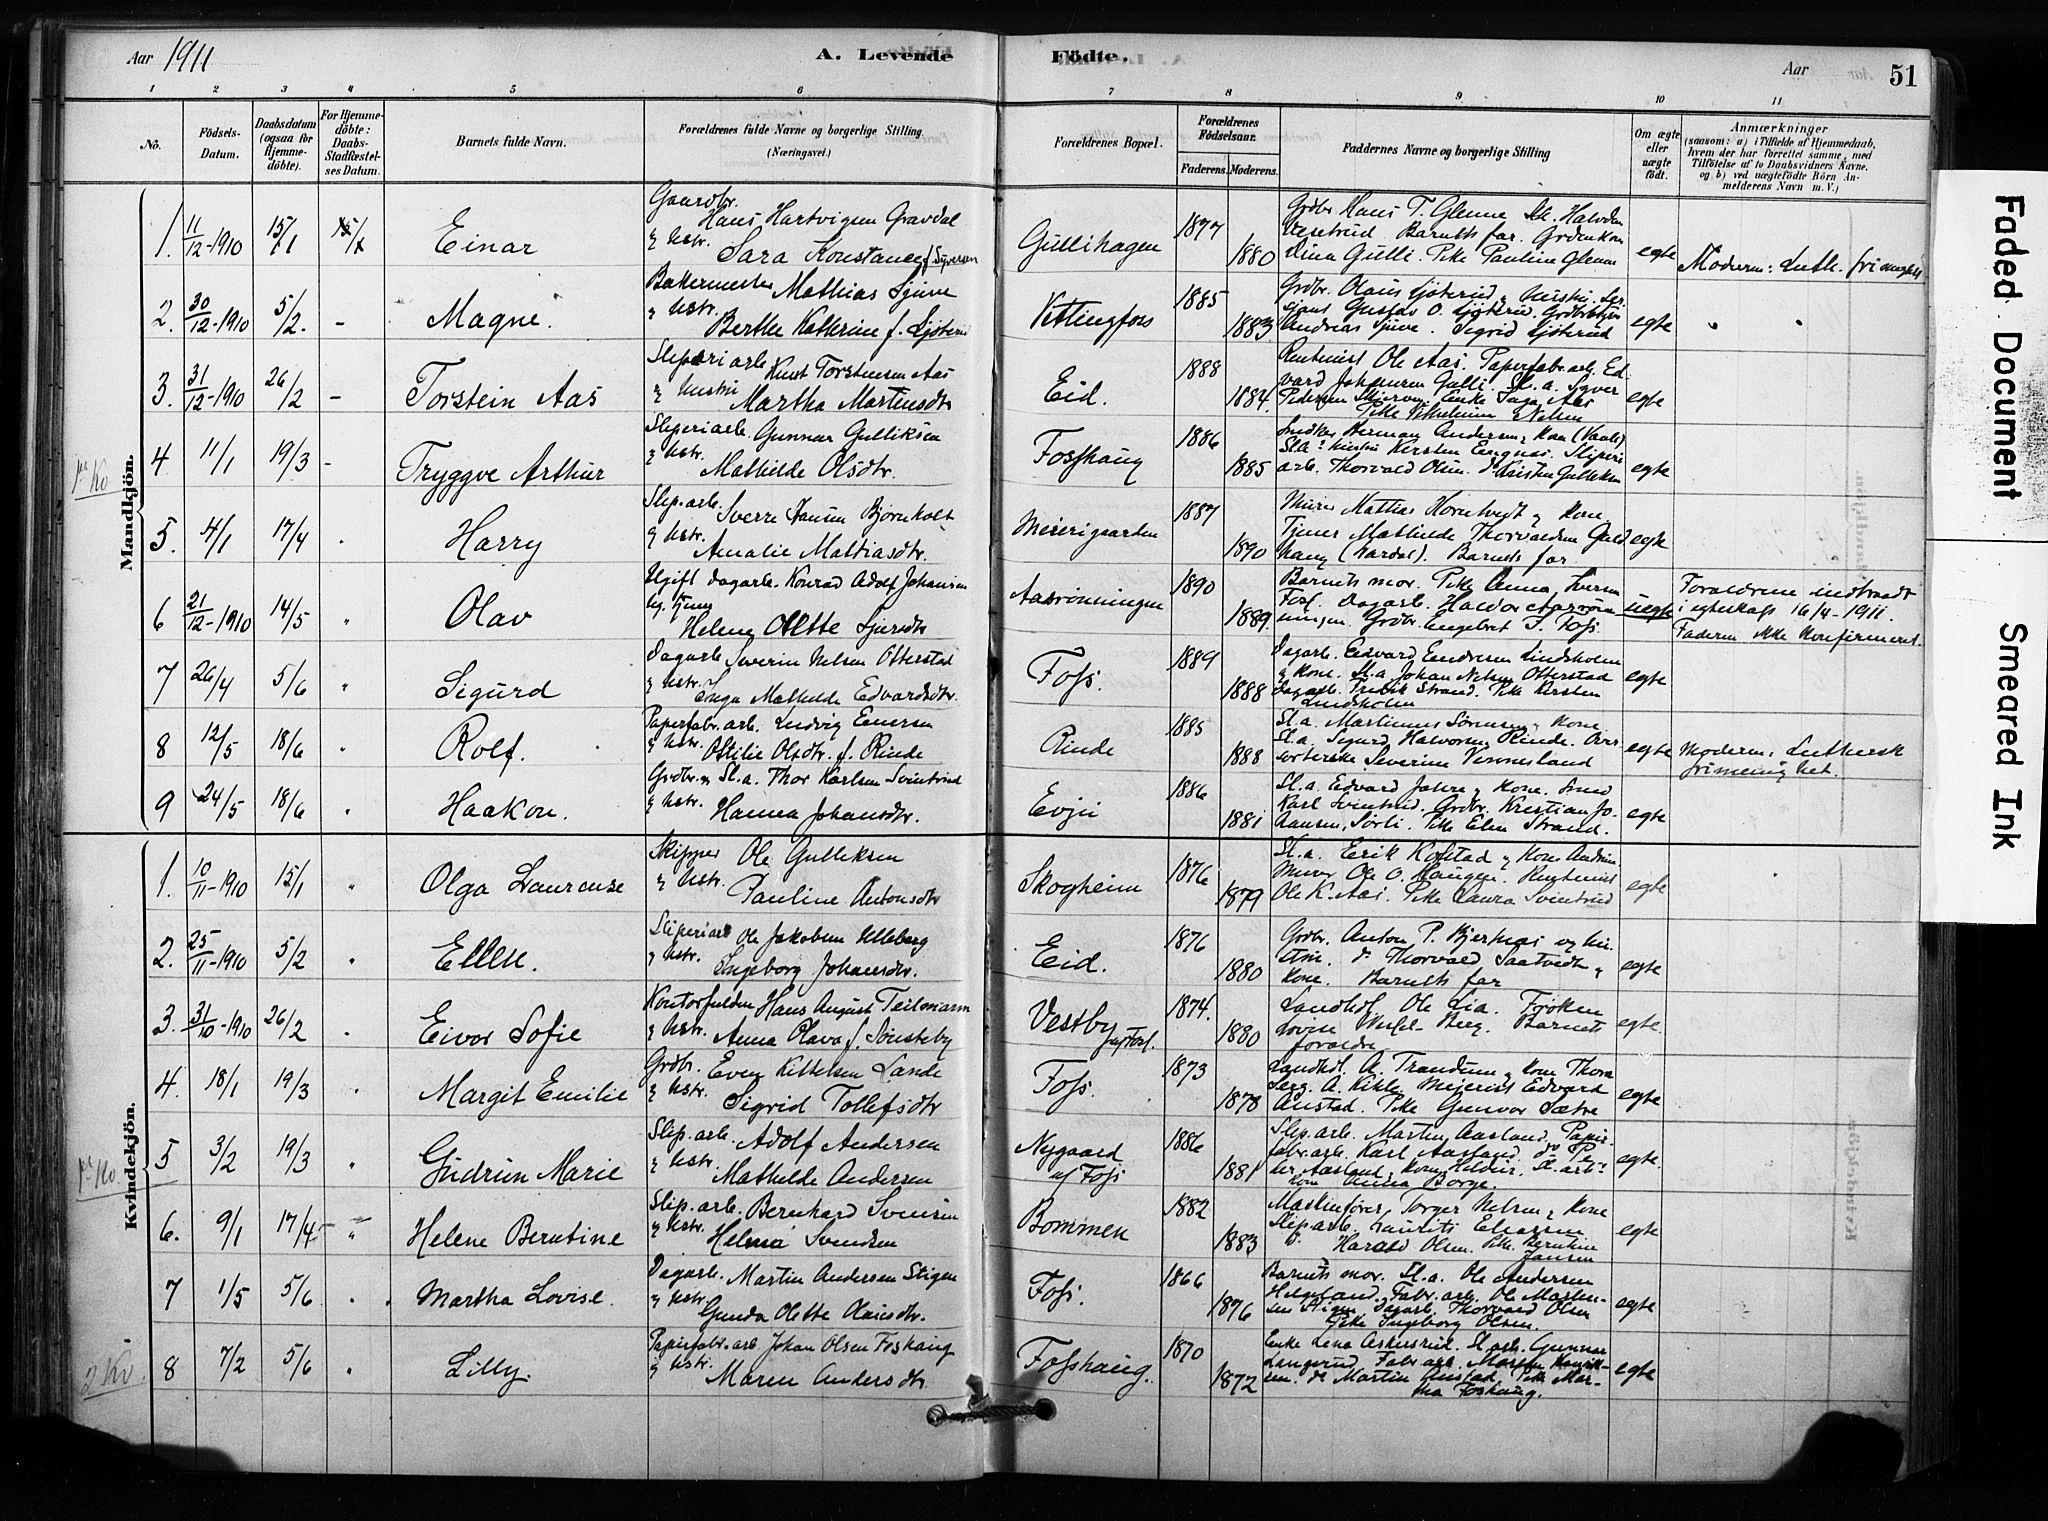 Aar 1911
A. Levende
Fødte.
Aar
51
1 2 3 4 5 6 7 8 9 10 11
No.
Födsels-Datum.
Daabsdatum (ogsaa för Hjemmedöbte).
For Hjemmedöbte: Daabs-Stadfæstelses Datum.
Barnets fulde Navn.
Forældrenes fulde Navne og borgerlige Stilling
(Næringsvei.)
Forældrenes Bopæl.
Forældrenes Födselsaar.
Faderens. Moderens.
Faddernes Navne og borgerlige Stilling
Om ægte eller uægte födt.
Anmærkninger
(saasom: a) i Tilfælde af Hjemmedaab, hvem der har forrettet samme, med Tilföielse af to Daabsvidners Navne, og b) ved uægtefödte Börn Anmelderens Navn m. V.)
Mandkjön.
1. 11/12-1910 15/1 Einar
Gaardbr. Hans Hartvigsen Gravdal
& hstr. Sara Konstance f. Syversen
Gullihagen 1877 1880
Grdbr Hans T. Glenne
Barnets far.
Dina Gulli. Pike Pauline Glenne
egte
Moderen: Luth. frimenighet
2. 30/12-1910 5/2. - Magne.
Bakermester Mathias Sjuve
& hstr. Berthe Kathrine f. Ljøterud
Vittingfoss 1885 1883
Grdbr. Olaus Ljøterud & hustru.
Gustav O. Ljøterud.
Andreas Sjuve. Sigrid Ljøterud
egte " "
3. 31/12-1910 26/2 - Torstein Aas
Sliperiarb. Knut Torstensen Aas
& hustru Martha Martinsdtr
Eid. 1888 1884.
Rentenist Ole Aas. Papirfabr.arb. Edvard Johansen Gulli. Sl.a. Syver
Pedersen Enke Inga Aas
egte
1ste Ko
4 11/1 19/3 - Tryggve Arthur
Sliperiarb. Gunnar Gulliksen
& hstr. Mathilde Olsdtr.
Fosshaug 1886 1885
Snedker Herman Andersen & kone (Vaale)
Sl.a. & hustru Kirsten Engnæs. Sliperiarb. Thorvald Olsen. do Kristen Gulliksen
egte
5. 4/1 17/4 Harry
Slip.arb. Sverre Hansen Bjørnholt
& hstr. Amalie Mathiasdtr.
Meierigaarden 1887 1890
Murer Mathias Horntvedt & kone
Tjener Mathilde Thorvaldsen
(Lardal). Barnets far.
egte
6 21/12-1910 14/5 " Olav
Ugift dagarb. Konrad Adolf Johansen
Helene Olette Sjursdtr
Aasrønningen 1890 1889.
Barnets mor. Pike Anna Iversen
Foss. Dagarb. Halvor Aasrønningen. Grdbr. Engebret I. Foss.
uegte
Forældrene indtraadt
i egteskap 16/4-1911.
Faderen ikke konfirmeret.
7 26/4 5/6 " Sigurd
Dagarb. Severin Nelsen Otterstad
& hstr. Inga Mathilde Edvardsdtr.
Foss. 1889 1888
Dagarb. Edvard Endresen Lindsholm
& kone. Sl.a Johan Nelsen Otterstad
Dagarb. Fredrik Strand. Pike Kirsten
Lindsholm
egte
8 12/5 18/6 " Rolf.
Papirfabr.arb. Ludvig Einersen
& hstr. Ottilie Olsdtr. f. Rinde
Rinde 1885 1888
Sl.a. Martinius Sørensen & kone
Sl.a. Sigurd Halvorsen Rinde.
Severine Vennesland
egte
Moderen: Luthersk
frimenighet.
9 24/5 18/6 " Haakon.
Grdbr. & Sl.a. Thor Karlsen Svintrud
& hstr. Hanna Johansdtr.
Evju 1886 1881
Sl.a. Edvard Jahre & kone. Smed
Karl Svintrud. Grdbr. Kristian Johansen, Sørli. Pike Elen Strand.
egte
Kvindekjön.
1. 10/11-1910 15/1 " Olga Laurense
Skipper Ole Gulliksen
& hstr. Pauline Antonsdtr
Skogheim 1876 1879
Sl.a. Erik Kolstad & kone Andrine
Murer Ole O. Haugen. Rentenist
Ole K. Aas. Pike Laura Svintrud
egte
2. 25/11-1910 5/2 " Ellen.
Sliperiarb Ole Jakobsen Ulleberg
& hstr. Ingeborg Johansdtr.
Eid. 1876 1880
Grdbr. Anton P. Bjerknæs og hustru. do Thorvald Saatvedt &
kone. Barnets far
egte
3. 31/10-1910 26/2 " Eivor Sofie
Hans August Teilmann
& hstr. Anna Olava f. Sønsteby
Vestby 1874. 1880
Landhdl. Ole Lia. Frøken
Lovise Berg. Barnets
forældre
egte
4. 18/1 19/3 " Margit Emilie
Grdbr. Even Kittelsen Lande
& hstr. Sigrid Tollefsdtr
Foss. 1873 1878
Landhdl. A. Trandum & kone Thora
Meierist Edvard
Anstad. Pike Gunvor Sætre
egte
1ste Ko.
5 3/2 19/3 " Gudrun Marie
Slip.arb. Adolf Andersen
& hstr. Mathilde Andersen
Nygaard u/ Foss 1886 1881
Slip.arb. Martin Aasland. Papirfabr.arb. Karl Aasland. do Peder Aasland & kone Hildur. Sl.arb.
kone Anna Borge.
egte.
6. 9/1 17/4 " Helene Berntine
Slip.arb. Bernhard Svensen
& hstr. Helma Svendsen
Bommen 1882 1883
Maskinfører Torger Nelsen & kone
Slip.arb. Laurits Eliassen
do Harald Olsen. Pike Berntine
Jansen
egte
7 1/5 5/6 " Martha Lovise.
Dagarb. Martin Andersen Stigen
& hstr. Gunda Olette Olausdtr.
Foss. 1866 1876
Barnets mor. Sl.a. Ole Andersen
Helgeland. Fabr.arb. Ole Martensen Stigen Dagarb. Thorvald Olsen
Pike Ingeborg Olsen.
egte
2 Ko.
8 7/2 5/6 " Lilly.
Papirfabr.arb. Johan Olsen Foshaug
& hstr. Maren Andersdtr.
Fosshaug. 1870 1872
Enke Lena Askersrud. Sl.arb. Gunnar
Langerud. Fabr.arb. Marthin Henriksen. do Martin Anstad. Pike Martha Foshaug.
egte
Faded Document
Smeared Ink